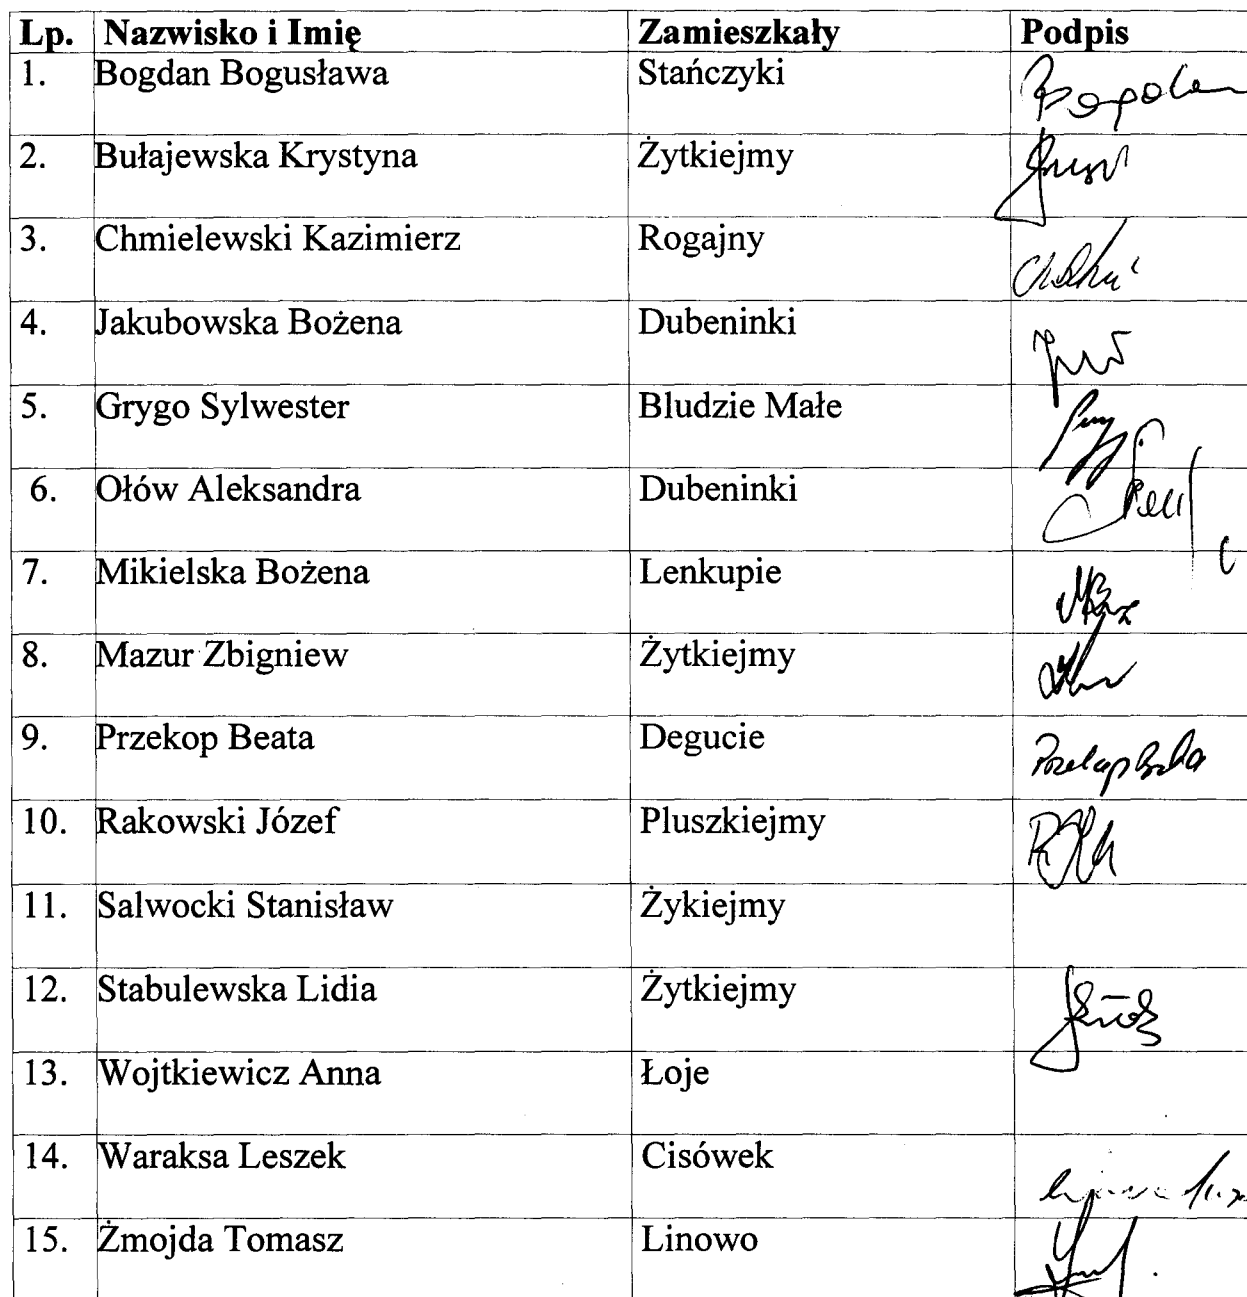 Lp. Nazwisko i Imię Zamieszkały Podpis
1. Bogdan Bogusława Stańczyki
2. Bułajewska Krystyna Żytkiejmy
3. Chmielewski Kazimierz Rogajny
4. Jakubowska Bożena Dubeninki
5. Grygo Sylwester Bludzie Małe
6. Ołów Aleksandra Dubeninki
7. Mikielska Bożena Lenkupie
8. Mazur Zbigniew Żytkiejmy
9. Przekop Beata Degucie
10. Rakowski Józef Pluszkiejmy
11. Salwocki Stanisław Żykiejmy
12. Stabulewska Lidia Żytkiejmy
13. Wojtkiewicz Anna Łoje
14. Waraksa Leszek Cisówek
15. Żmojda Tomasz Linowo